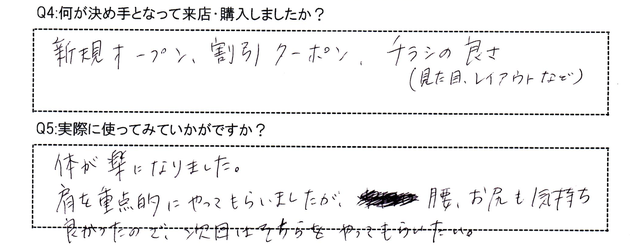 Q4:何が決め手となって来店・購入しましたか？
新規オープン、割引クーポン、チラシの良さ
(見た目、レイアウトなど)
Q5:実際に使ってみていかがですか？
体が楽になりました。
肩を重点的にやってもらいましたが、腰、お尻も気持ち
良かったので、次回はそちらをやってもらいたい。